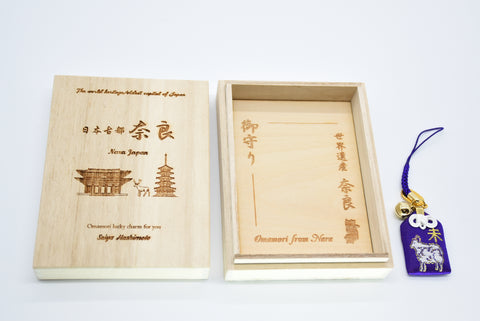 The world heritage/oldest capital of Japan
日本古都 奈良
Nara Japan
Omamori lucky charm for you
Seiya Hashimoto
御守り
世界遺産 奈良
Omamori from Nara
未